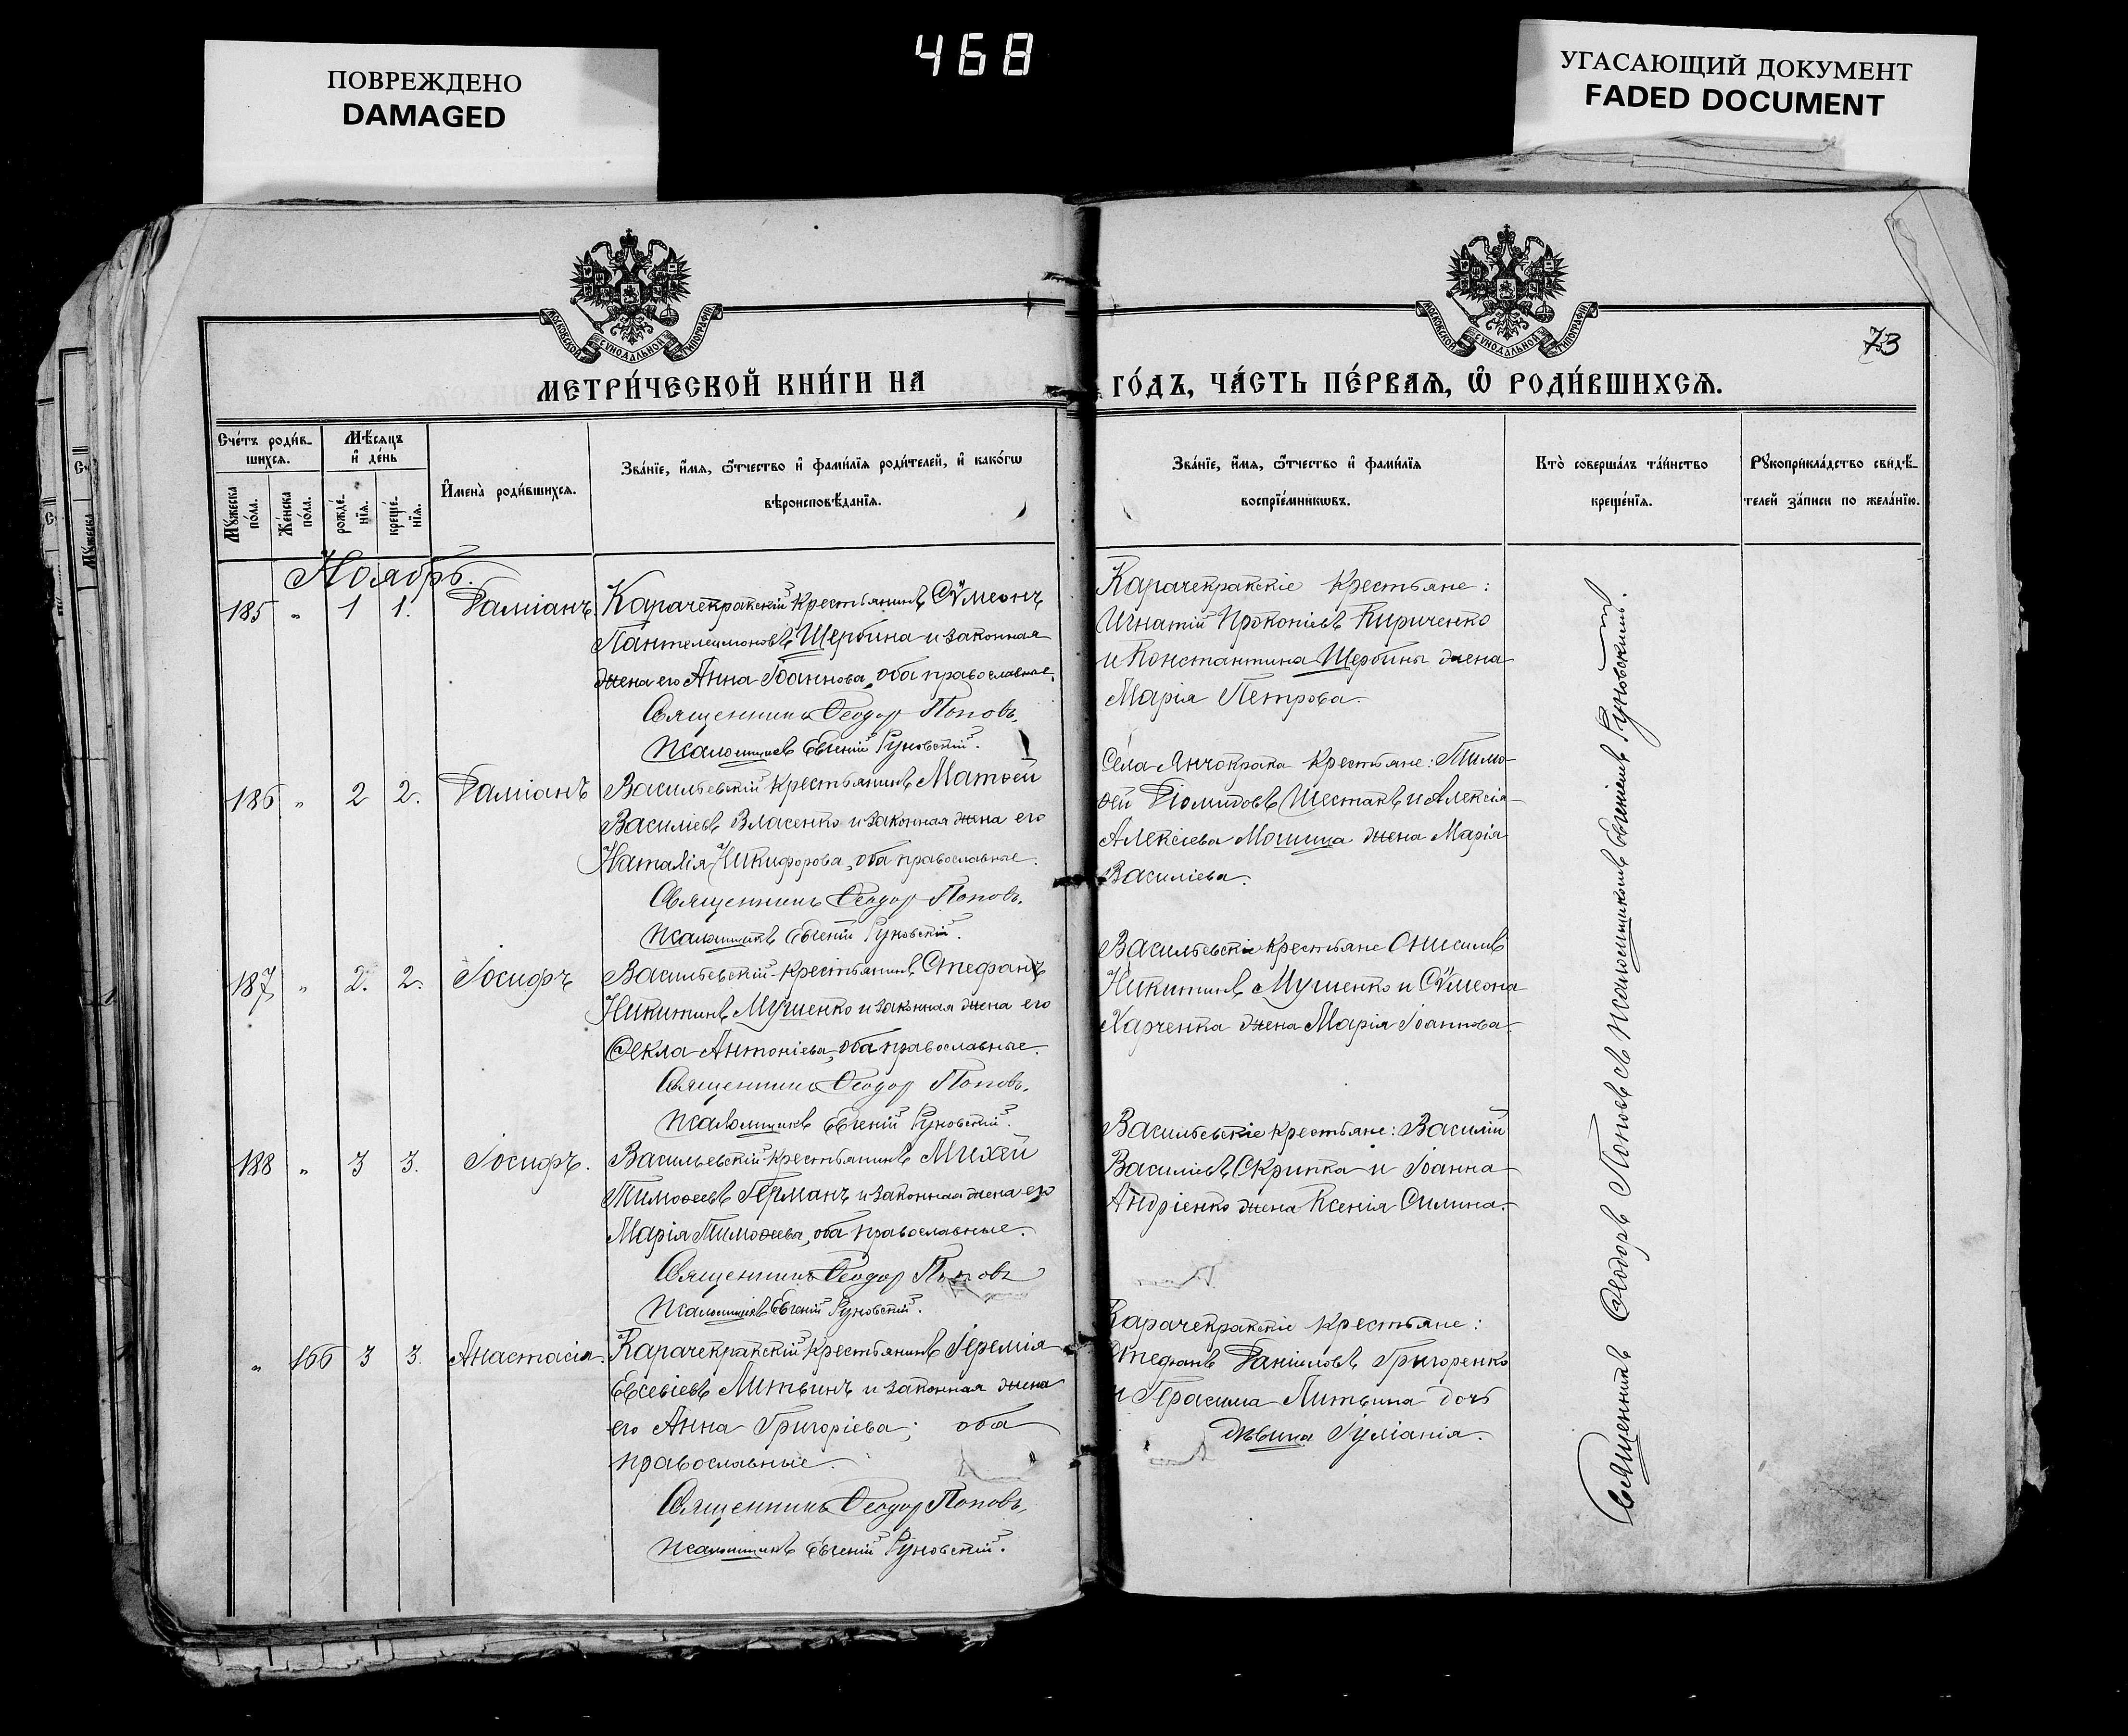 468
ПОВРЕЖДЕНО
DAMAGED
УГАСАЮЩИЙ ДОКУМЕНТ
FADED DOCUMENT
МОСКОВСКОЙ СѴНОДАЛЬНОЙ ТИПОГРАФІИ
МОСКОВСКОЙ СѴНОДАЛЬНОЙ ТИПОГРАФІИ
73
МЕТРИ́ЧЕСКОЙ КНИ́ГИ НА
ГО́ДЪ, ЧА́СТЬ ПЕ́РВАѦ, Ѡ РОДИ́ВШИХСѦ.
Сче́тъ роди́в-
шихсѧ.
Мѣ́сяцъ
и де́нь
Мꙋ́жеска по́ла.
Же́нска по́ла.
рожде́-нїѧ.
креще́-нїѧ.
Имена̀ роди́вшихсѧ.
Зва́нїе, и́мѧ, ѻ҆́тчество и҆ фами́лїѧ роди́телей, и҆ како́гѡ
вѣроисповѣ́данїѧ.
Зва́нїе, и́мѧ, ѻ҆́тчество и҆ фами́лїѧ
воспрїе́мникѡвъ.
Кто̀ соверша́лъ та́инство
креще́нїѧ.
Рꙋкоприкла́дство свидѣ́-
телей за́писи по жела́нїю.
Ноябрь.
185 " 1 1. Даміанъ.
Карачекракскій крестьянинъ Сѵмеонъ
Пантелеимоновъ Щербина и законная
жена его Анна Іоаннова, оба православные.
Священникъ Ѳеодор Поповъ.
Псаломщикъ Евгеній Руновскій.
Карачекракскіе крестьяне:
Игнатій Прокопіевъ Кириченко
и Константина Щербины жена
Марія Петрова.
186 " 2 2. Даміанъ
Васильевскій крестьянинъ Матѳей
Василіевъ Власенко и законная жена его
Наталія Никифорова, оба православные.
Священникъ Ѳеодор Поповъ.
Псаломщикъ Евгеній Руновскій.
Села Янчокрака крестьяне: Тимо-
ѳей Діомидовъ Шестакъ и Алексія
Алексіева Мошица жена Марія
Василіева.
187 " 2. 2. Іосифъ
Васильевскій крестьянинъ Стефанъ
Никитинъ Мушенко и законная жена его
Ѳекла Антоніева, оба православные.
Священникъ Ѳеодор Поповъ.
Псаломщикъ Евгеній Руновскій.
Васильевскіе крестьяне Онисимъ
Никитинъ Мушенко и Сѵмеона
Харченка жена Марія Іоаннова
188 " 3 3. Іосифъ.
Васильевскій крестьянинъ Михей
Тимоѳеевъ Германъ и законная жена его
Марія Тимоѳеева, оба православные.
Священникъ Ѳеодор Поповъ
Псаломщикъ Евгеній Руновскій.
Васильевскіе крестьяне: Василій
Василіевъ Скрипка и Іоанна
Андріенко жена Ксенія Силина.
" 166 3 3. Анастасія.
Карачекракскій крестьянинъ Іеремія
Евсевіевъ Литвинъ и законная жена
его Анна Григоріева; оба
православные.
Священникъ Ѳеодор Поповъ.
Псаломщикъ Евгеній Руновскій.
Карачекракскіе крестьяне:
Стефанъ Даніиловъ Григоренко
и Герасима Литвина дочь
дѣвица Іуліанія.
Священникъ Ѳеодоръ Поповъ съ Псаломщикомъ Евгеніемъ Руновскимъ.